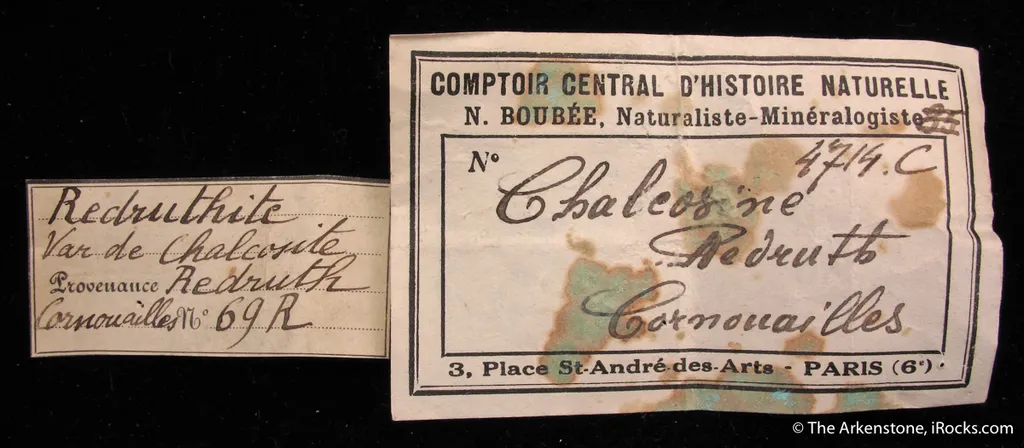 Redruthite
Var de Chalcosite
Provenance Redruth
Cornouailles N° 69 R
COMPTOIR CENTRAL D'HISTOIRE NATURELLE
N. BOUBÉE, Naturaliste-Minéralogiste
N° 4714. C
Chalcosine
Redruth
Cornouailles
3, Place St-André-des-Arts - PARIS (6e).
© The Arkenstone, iRocks.com